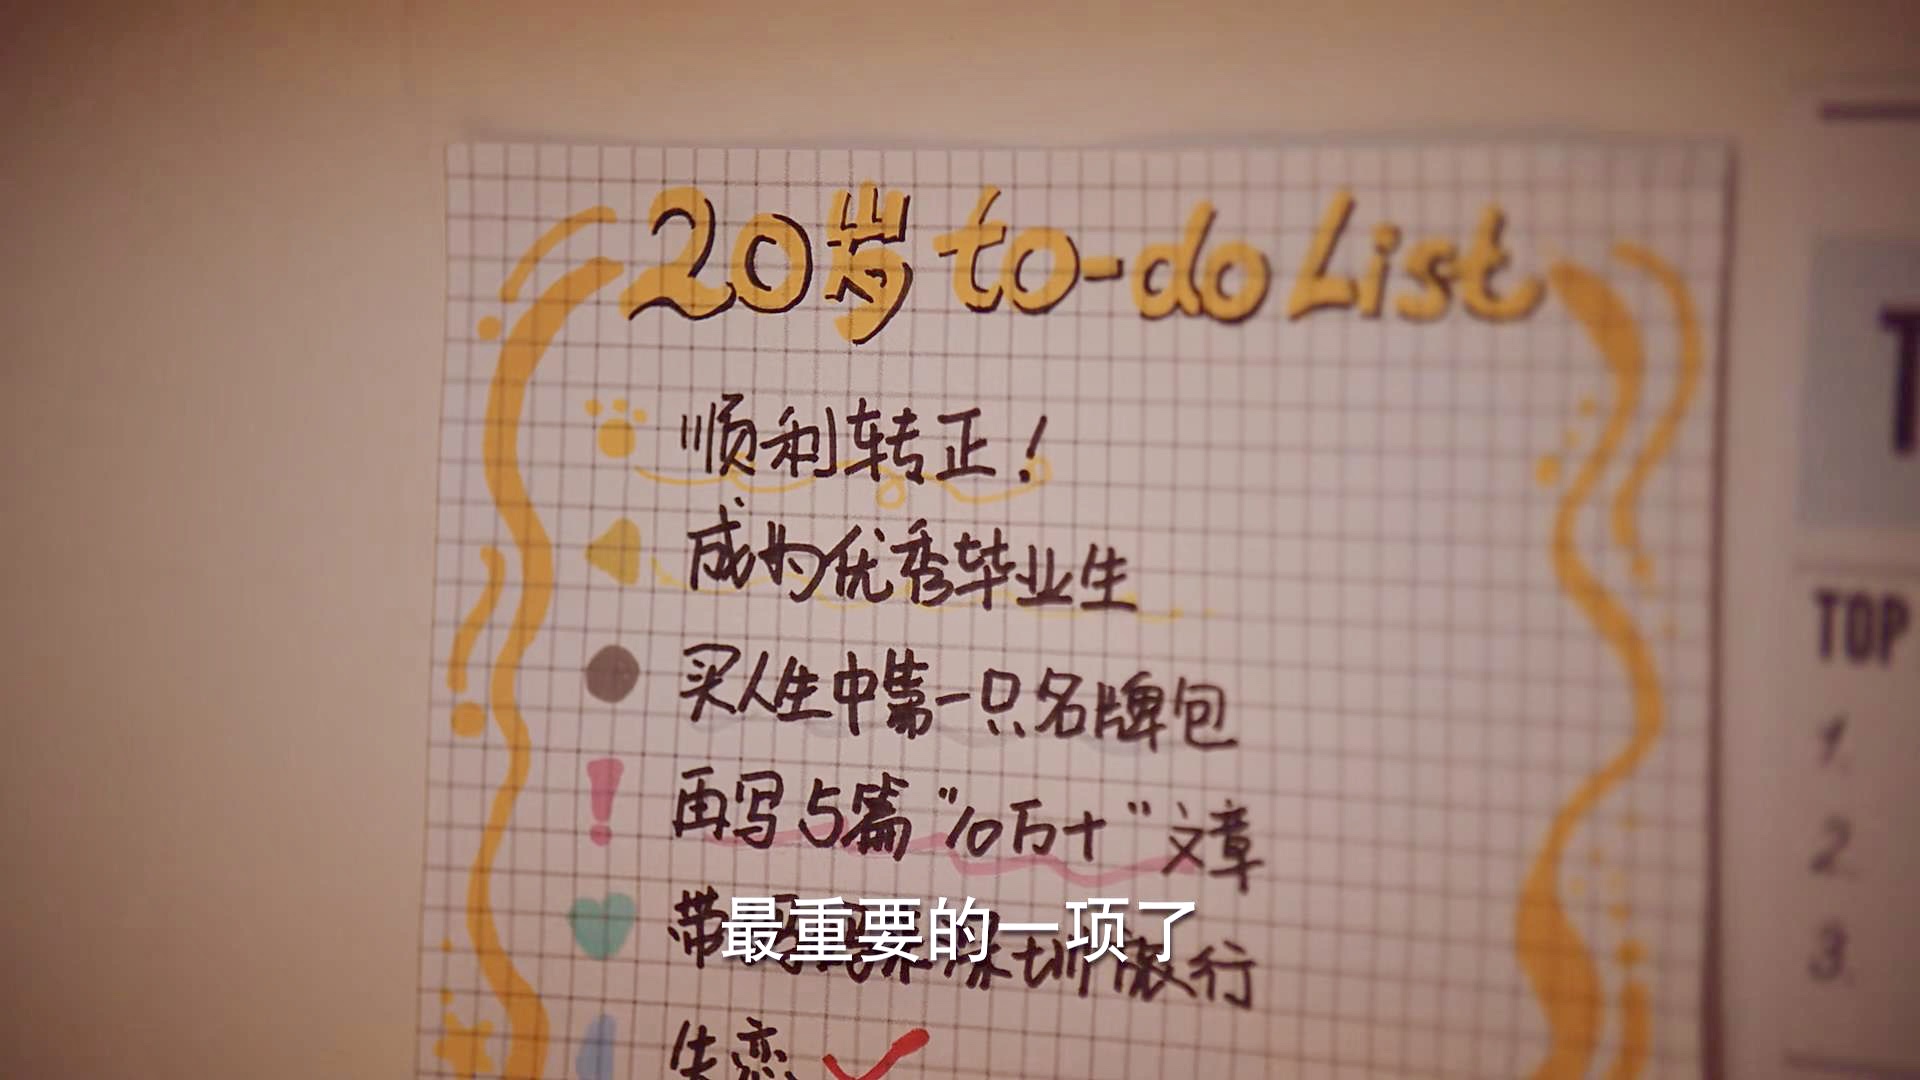 20岁 to-do List
顺利转正！
成为优秀毕业生
买人生中第一只名牌包
再写5篇“10万+”文章
带妈妈来深圳旅行
最重要的一项了
失恋
T
TOP
1.
2.
3.